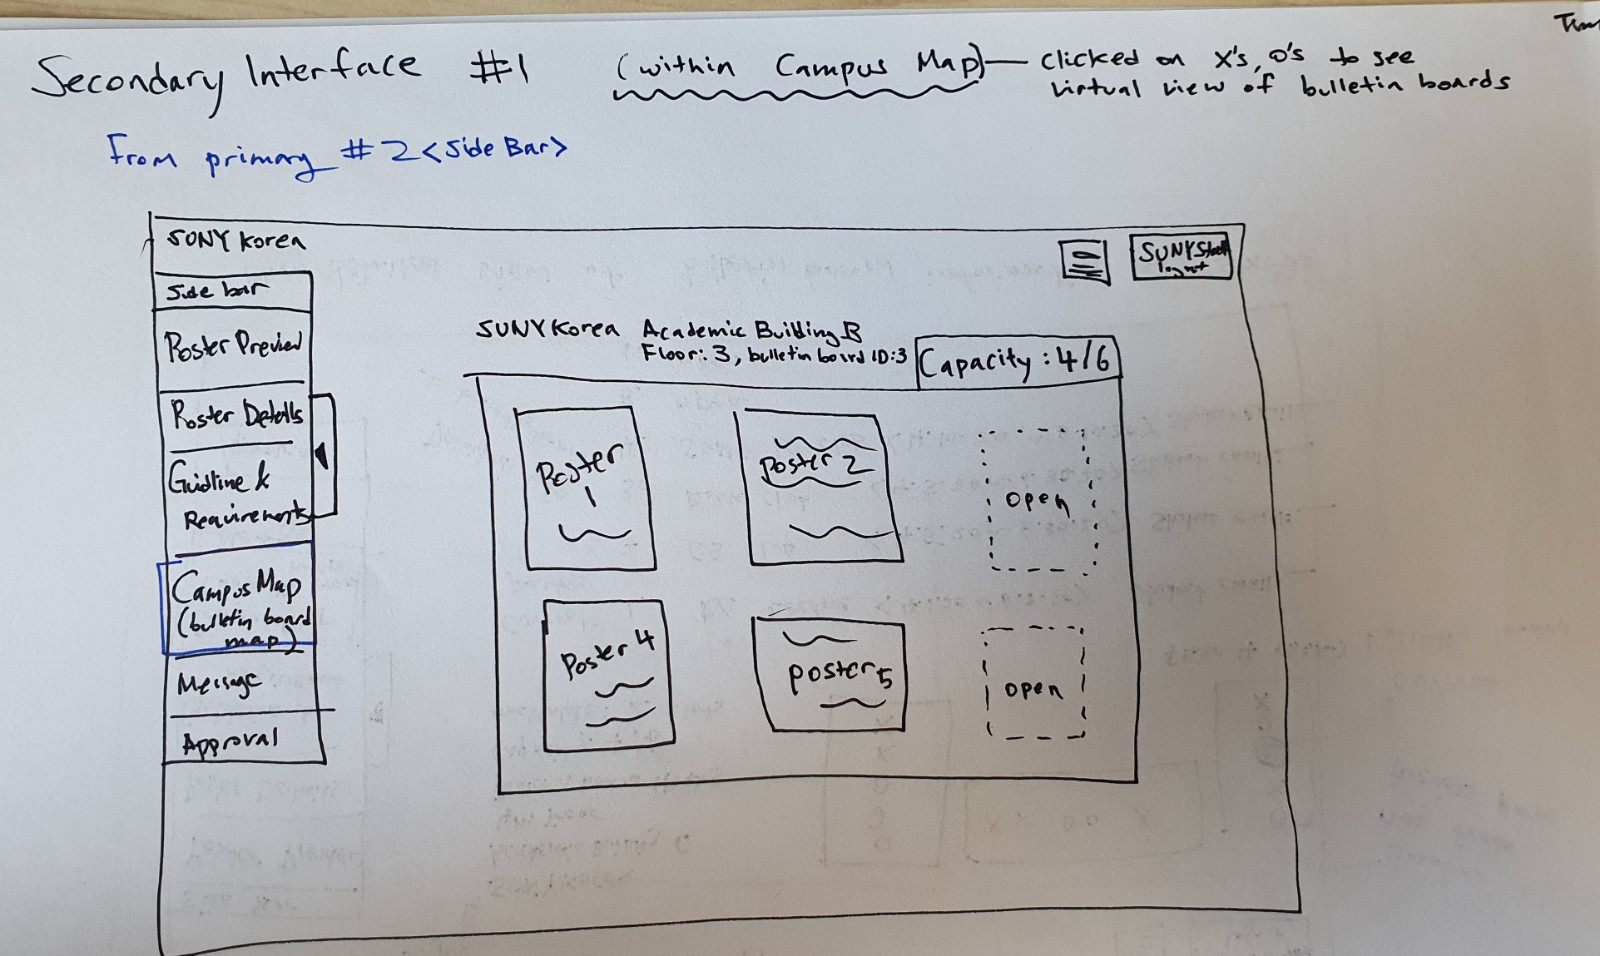 Secondary Interface #1 (within Campus Map) — clicked on X's, O's to see
virtual view of bulletin boards
From primary #2 <Side Bar>
SUNY Korea
SUNY
logout
Side bar
Poster Preview
Poster Details
Guidline &
Requirements
Campus Map
(bulletin board
map)
Message
Approval
SUNY Korea Academic Building B
Floor: 3, bulletin board ID:3
Capacity : 4/6
Poster
1
Poster 2
open
Poster 4
poster 5
open